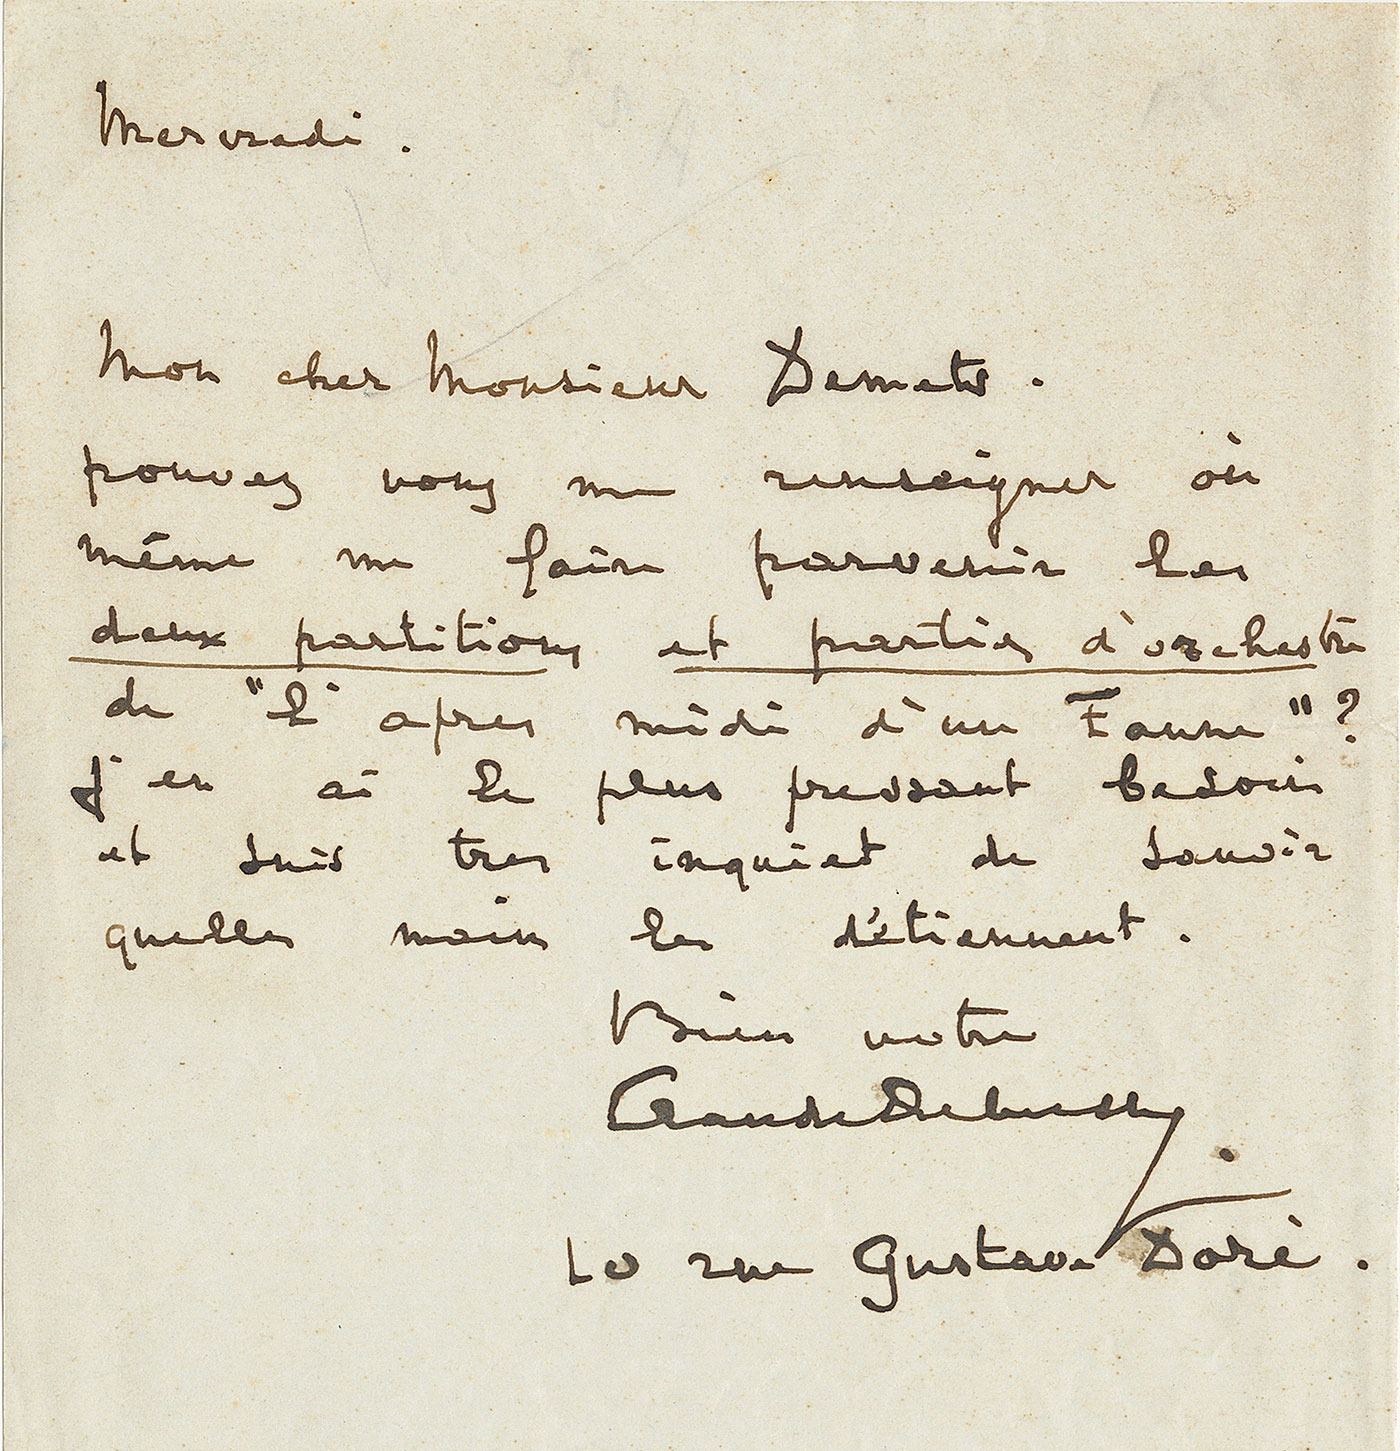 Mercredi.
Mon cher Monsieur Demets.
pouvez vous me renseigner où
même me faire parvenir les
deux partitions et parties d'orchestre
de "L'apres midi d'un Faune"?
J'en ai le plus pressant besoin
et suis tres inquiet de savoir
quelles mains les détiennent.
Bien votre
Claude Debussy.
10 rue Gustave Doré.